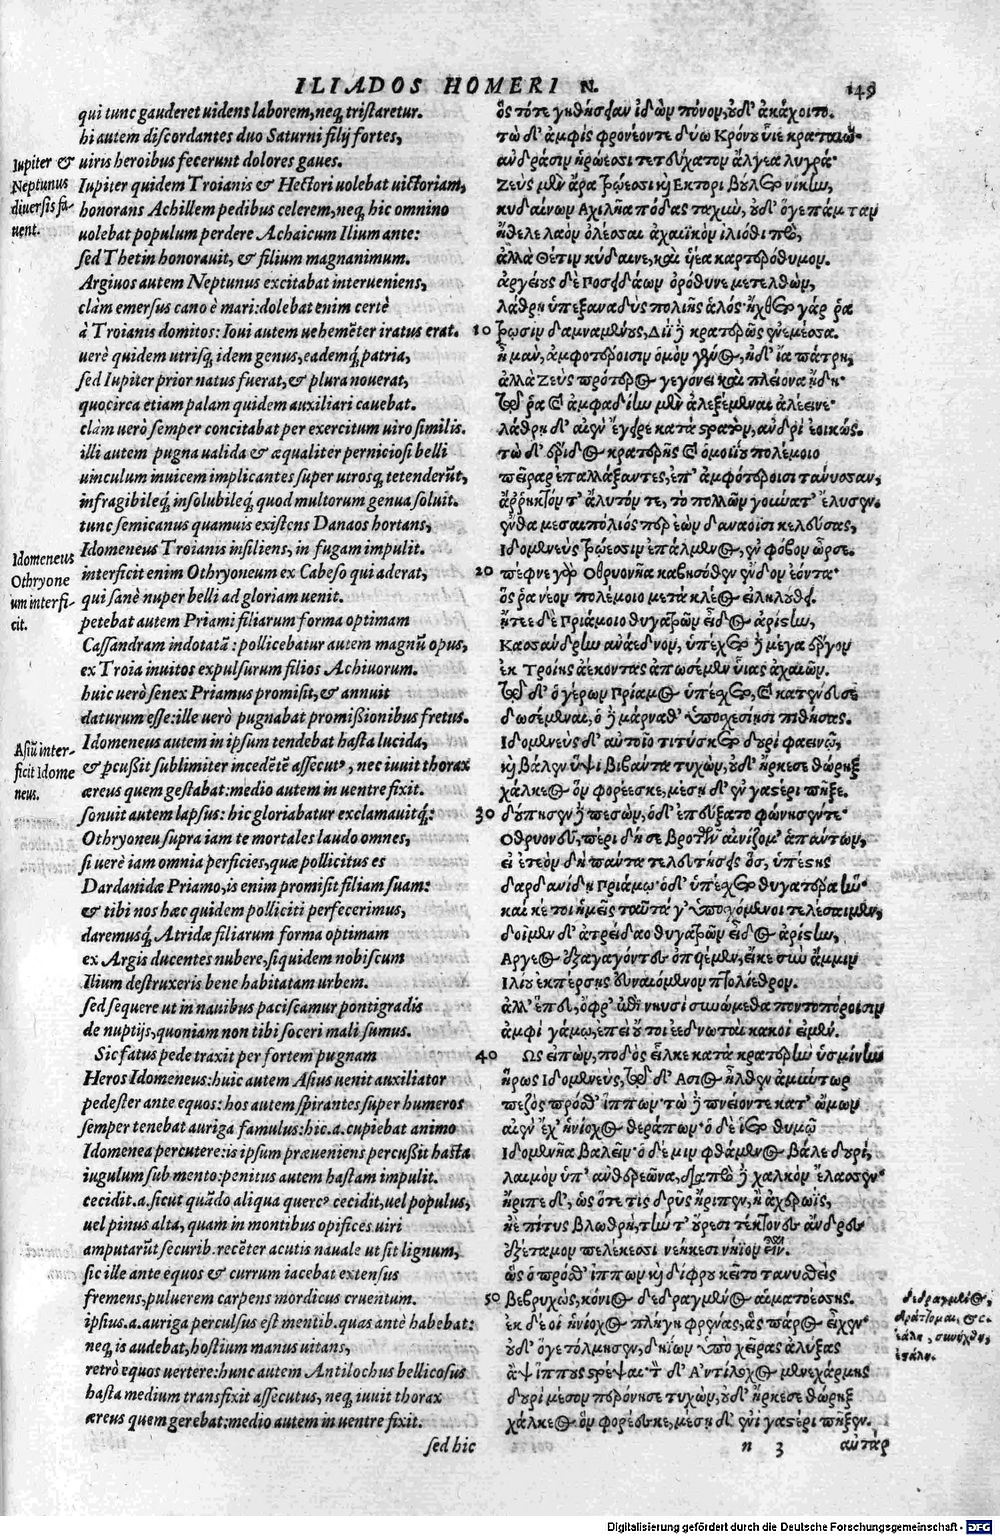 ILIADOS HOMERI N. 149
qui tunc gauderet uidens laborem, neq, tristaretur.
hi autem discordantes duo Saturni filij fortes,
uiris heroibus fecerunt dolores gaues.
Iupiter quidem Troianis & Hectori uolebat uictoriam,
honorans Achillem pedibus celerem, neq, hic omnino
uolebat populum perdere Achaicum Ilium ante:
sed Thetin honorauit, & filium magnanimum.
Argiuos autem Neptunus excitabat interueniens,
clàm emersus cano è mari: dolebat enim certè
à Troianis domitos: Ioui autem uehemēter iratus erat.
uerè quidem utrisq, idem genus, eademq, patria,
sed Iupiter prior natus fuerat, & plura nouerat,
quocirca etiam palam quidem auxiliari cauebat.
clàm uerò semper concitabat per exercitum uiro similis.
illi autem pugna ualida & æqualiter perniciosi belli
uinculum inuicem implicantes super utrosq, tetenderūt,
infragibileq, insolubileq, quod multorum genua soluit.
tunc semicanus quamuis existens Danaos hortans,
Idomeneus Troianis insiliens, in fugam impulit.
interficit enim Othryoneum ex Cabeso qui aderat,
qui sanè nuper belli ad gloriam uenit.
petebat autem Priami filiarum forma optimam
Cassandram indotatā: pollicebatur autem magnū opus,
ex Troia inuitos expulsurum filios Achiuorum.
huic uerò senex Priamus promisit, & annuit
daturum esse: ille uerò pugnabat promißionibus fretus.
Idomeneus autem in ipsum tendebat hasta lucida,
& pcußit sublimiter incedētē assecut', nec iuuit thorax
æreus quem gestabat: medio autem in uentre fixit.
sonuit autem lapsus: hic gloriabatur exclamauitq,:
Othryoneu supra iam te mortales laudo omnes,
si uerè iam omnia perficies, quæ pollicitus es
Dardanidæ Priamo, is enim promisit filiam suam:
& tibi nos hæc quidem polliciti perfecerimus,
daremusq, Atridæ filiarum forma optimam
ex Argis ducentes nubere, siquidem nobiscum
Ilium destruxeris bene habitatam urbem.
sed sequere ut in nauibus paciscamur pontigradis
de nuptijs, quoniam non tibi soceri mali sumus.
Sic fatus pede traxit per fortem pugnam
Heros Idomeneus: huic autem Asius uenit auxiliator
pedester ante equos: hos autem spirantes super humeros
semper tenebat auriga famulus: hic .a. cupiebat animo
Idomenea percutere: is ipsum præueniens percußit hasta
iugulum sub mento: penitus autem hastam impulit.
cecidit .a. sicut quādo aliqua querc' cecidit, uel populus,
uel pinus alta, quam in montibus opifices uiri
amputarūt securib. recēter acutis nauale ut sit lignum,
sic ille ante equos & currum iacebat extensus
fremens, puluerem carpens mordicus cruentum.
ipsius .a. auriga perculsus est mentib. quas antè habebat:
neq, is audebat, hostium manus uitans,
retrò equos uertere: hunc autem Antilochus bellicosus
hasta medium transfixit assecutus, neq, iuuit thorax
æreus quem gerebat: medio autem in uentre fixit.
sed hic
Iupiter &
Neptunus
diuersis fa-
uent.
Idomeneus
Othryone
um interfi-
cit.
Asiū inter-
ficit Idome
neus.
ὃς τότε γηθήσειεν ἰδὼν πόνον, οὐδ' ἀκάχοιτο.
τὼ δ' ἀμφὶς φρονέοντε δύω Κρόνου υἷε κραταιώ·
ἀνδράσιν ἡρώεσσι τετεύχατον ἄλγεα λυγρά·
Ζεὺς μὲν ἄρα τρώεσσι καὶ Εκτορι βούλετο νίκην,
κυδαίνων Αχιλῆα πόδας ταχὺν, οὐδ' ὅγε πάμπαν
ἤθελε λαὸν ὀλέσαι ἀχαιϊκὸν ἰλιόθι πρὸ,
ἀλλὰ Θέτιν κύδαινε, καὶ υἱέα καρτερόθυμον.
ἀργείους δὲ Ποσειδάων ὀρόθυνε μετελθὼν,
λάθρη ὑπεξαναδὺς πολιῆς ἁλός· ἤχθετο γάρ ῥα
10 τρωσὶν δαμναμένους, Διῒ δὲ κρατερῶς ἐνεμέσσα.
ἦ μὰν, ἀμφοτέροισιν ὁμὸν γένος, ἠδ' ἴα πάτρη,
ἀλλὰ Ζεὺς πρότερος γεγόνει καὶ πλείονα ᾔδη·
τῷ ῥα καὶ ἀμφαδίην μὲν ἀλεξέμεναι ἀλέεινε·
λάθρη δ' αἰὲν ἔγειρε κατὰ στρατὸν, ἀνδρὶ ἐοικώς.
τὼ δ' ἔριδος κρατερῆς καὶ ὁμοιΐου πολέμοιο
πεῖραρ ἐπαλλάξαντες, ἐπ' ἀμφοτέροισι τάνυσσαν,
ἄρρηκτόν τ' ἄλυτόν τε, τὸ πολλῶν γούνατ' ἔλυσεν.
ἔνθα μεσαιπόλιός περ ἐὼν δαναοῖσι κελεύσας,
Ιδομενεὺς τρώεσσιν ἐπάλμενος, ἐν φόβον ὦρσε.
20 πέφνε γὰρ Οθρυονῆα καβησόθεν ἔνδον ἐόντα·
ὅς ῥα νέον πολέμοιο μετὰ κλέος εἰληλούθει.
ᾔτεε δὲ Πριάμοιο θυγατρῶν εἶδος ἀρίστην,
Κασσάνδρην ἀνάεδνον, ὑπέσχετο δὲ μέγα ἔργον
ἐκ Τροίης ἀέκοντας ἀπωσέμεν υἷας ἀχαιῶν.
τῷ δ' ὁ γέρων Πρίαμος ὑπέσχετο, καὶ κατένευσε
δωσέμεναι, ὁ δὲ μάρναθ' ὑποσχεσίῃσι πιθήσας.
Ιδομενεὺς δ' αὐτοῖο τιτύσκετο δουρὶ φαεινῷ,
καὶ βάλεν ὕψι βιβάντα τυχὼν, οὐδ' ἤρκεσε θώρηξ
χάλκεος ὃν φορέεσκε, μέσῃ δ' ἐν γαστέρι πῆξε.
30 δούπησεν δὲ πεσὼν, ὁ δ' ἐπεύξατο φώνησέν τε·
Οθρυονεῦ, πέρι δή σε βροτῶν αἰνίζομ' ἁπάντων,
εἰ ἐτεὸν δὴ πάντα τελευτήσεις ὅσ, ὑπέστης
δαρδανίδῃ Πριάμῳ· ὁ δ' ὑπέσχετο θυγατέρα ἥν·
καί κέ τοι ἡμεῖς ταῦτά γ' ὑποσχόμενοι τελέσαιμεν,
δοῖμεν δ' ἀτρείδαο θυγατρῶν εἶδος ἀρίστην,
Αργεος ἐξαγαγόντες ὀπυιέμεν, εἴ κε σὺν ἄμμιν
Ιλίου ἐκπέρσῃς εὐναιόμενον πτολίεθρον.
ἀλλ' ἕπευ, ὄφρ' ἐπὶ νηυσὶ συνώμεθα ποντοπόροισιν
ἀμφὶ γάμῳ, ἐπεὶ οὔ τοι ἐεδνωταὶ κακοί εἰμέν.
40 Ως εἰπὼν, ποδὸς εἷλκε κατὰ κρατερὴν ὑσμίνην
ἥρως Ιδομενεὺς, τῷ δ' Ασιος ἦλθεν ἀμύντωρ
πεζὸς πρόσθ' ἵππων· τὼ δὲ πνείοντε κατ' ὤμων
αἰὲν ἔχ' ἡνίοχος θεράπων· ὁ δὲ ἵετο θυμῷ
Ιδομενῆα βαλεῖν· ὁ δέ μιν φθάμενος βάλε δουρὶ,
λαιμὸν ὑπ' ἀνθερεῶνα, διαπρὸ δὲ χαλκὸν ἔλασσεν·
ἤριπε δ', ὡς ὅτε τις δρῦς ἤριπεν, ἢ ἀχερωῒς,
ἠὲ πίτυς βλωθρὴ, τήν τ' οὔρεσι τέκτονες ἄνδρες
ἐξέταμον πελέκεσσι νεήκεσι νήϊον εἶναι.
ὣς ὁ πρόσθ' ἵππων καὶ δίφρου κεῖτο τανυσθεὶς
50 βεβρυχὼς, κόνιος δεδραγμένος αἱματοέσσης.
ἐκ δέ οἱ ἡνίοχος πλήγη φρένας, ἃς πάρος εἶχεν·
οὐδ' ὅγε τόλμησεν, δηΐων ὑπὸ χεῖρας ἀλύξας
ἂψ ἵππους στρέψαι· τὸν δ' Αντίλοχος μενεχάρμης
δουρὶ μέσον περόνησε τυχὼν, οὐδ' ἤρκεσε θώρηξ
χάλκεος ὃν φορέεσκε, μέσῃ δ' ἐνὶ γαστέρι πῆξεν.
n 3 αὐτὰρ
Digitalisierung gefördert durch die Deutsche Forschungsgemeinschaft - DFG